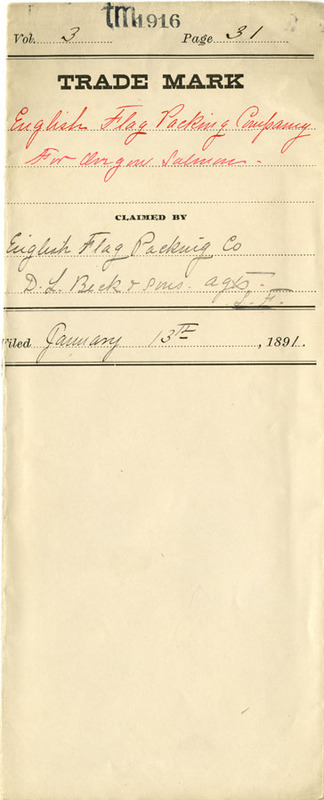 tm 1916
Vol. 3 Page 31
TRADE MARK
English Flag Packing Company
For Oregon Salmon.
CLAIMED BY
English Flag Packing Co
D. L. Beck & Sons. agts.
S. F.
Filed January 13th, 1891.